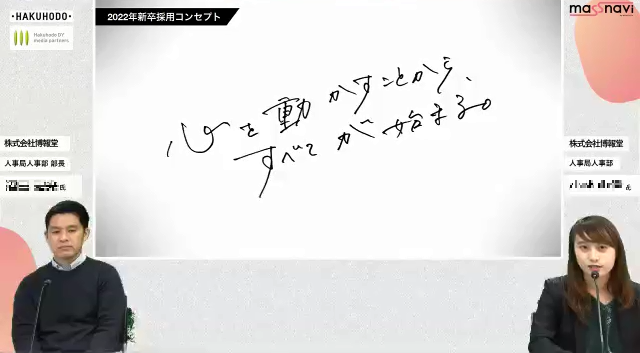 ·HAKUHODO·
Hakuhodo DY
media partners
2022年新卒採用コンセプト
massnavi
心を動かすことから、
すべてが始まる。
株式会社博報堂
人事局人事部 部長
氏
株式会社博報堂
人事局人事部
氏